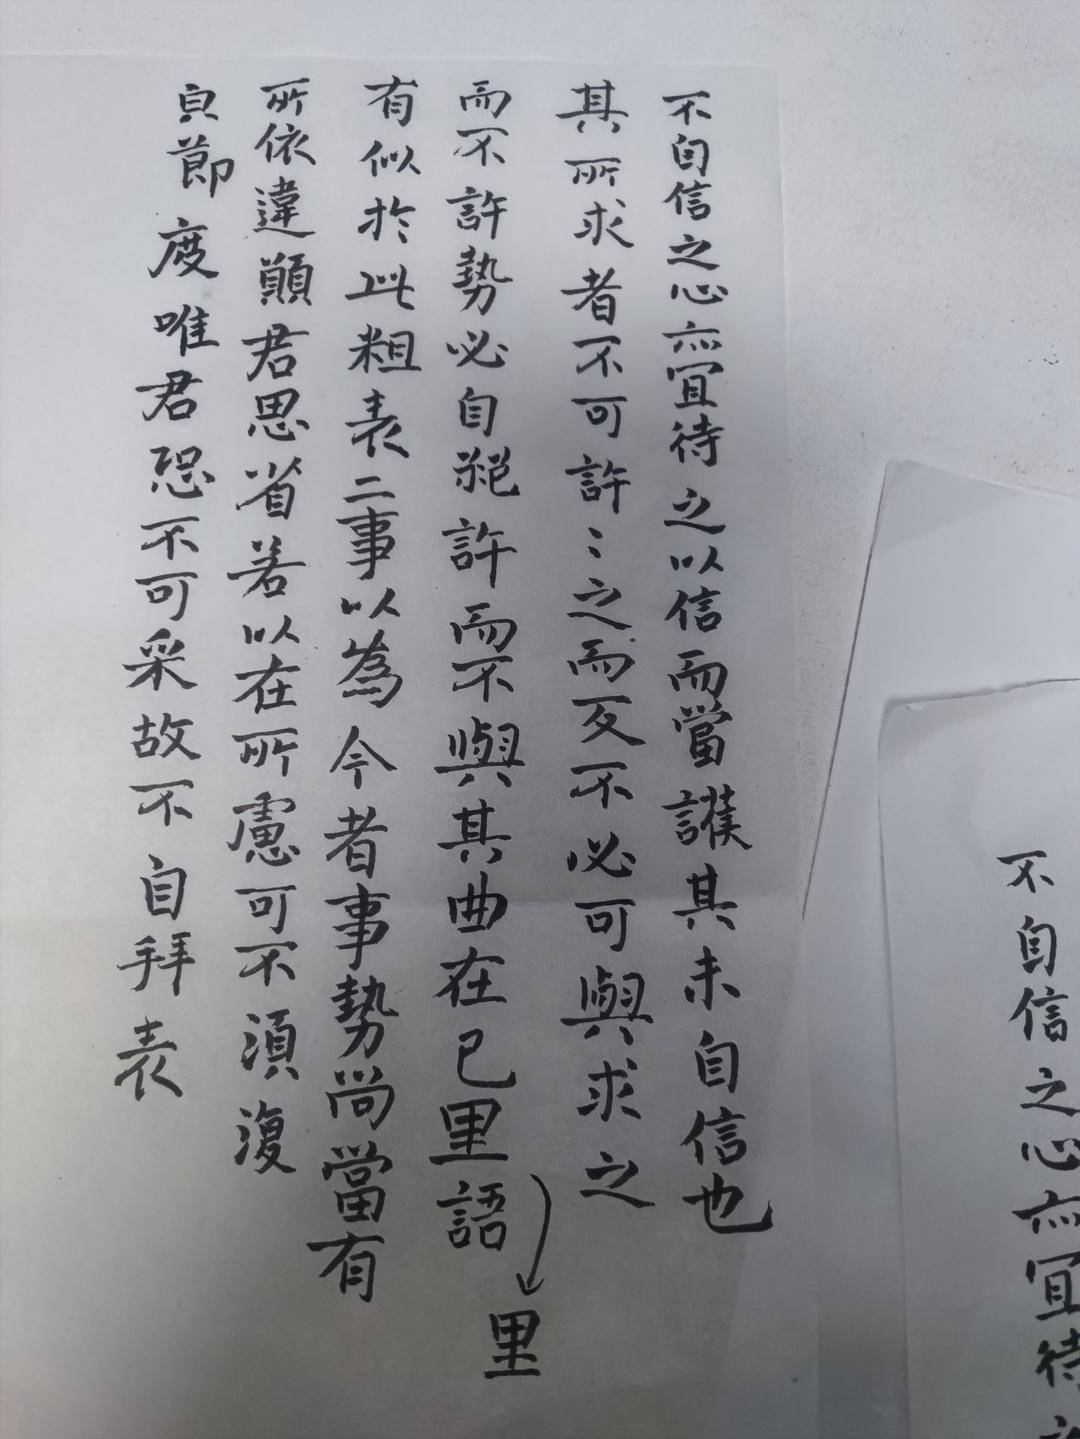 不自信之心亦宜待之以信而當護其未自信也
其所求者不可許〻之而反不必可與求之
而不許勢必自絕許而不與其曲在己里語
里
有似於此粗表二事以為今者事勢尚當有
所依違願君思省若以在所慮可不須復
節度唯君恐不可采故不自拜表
不自信之心亦宜待